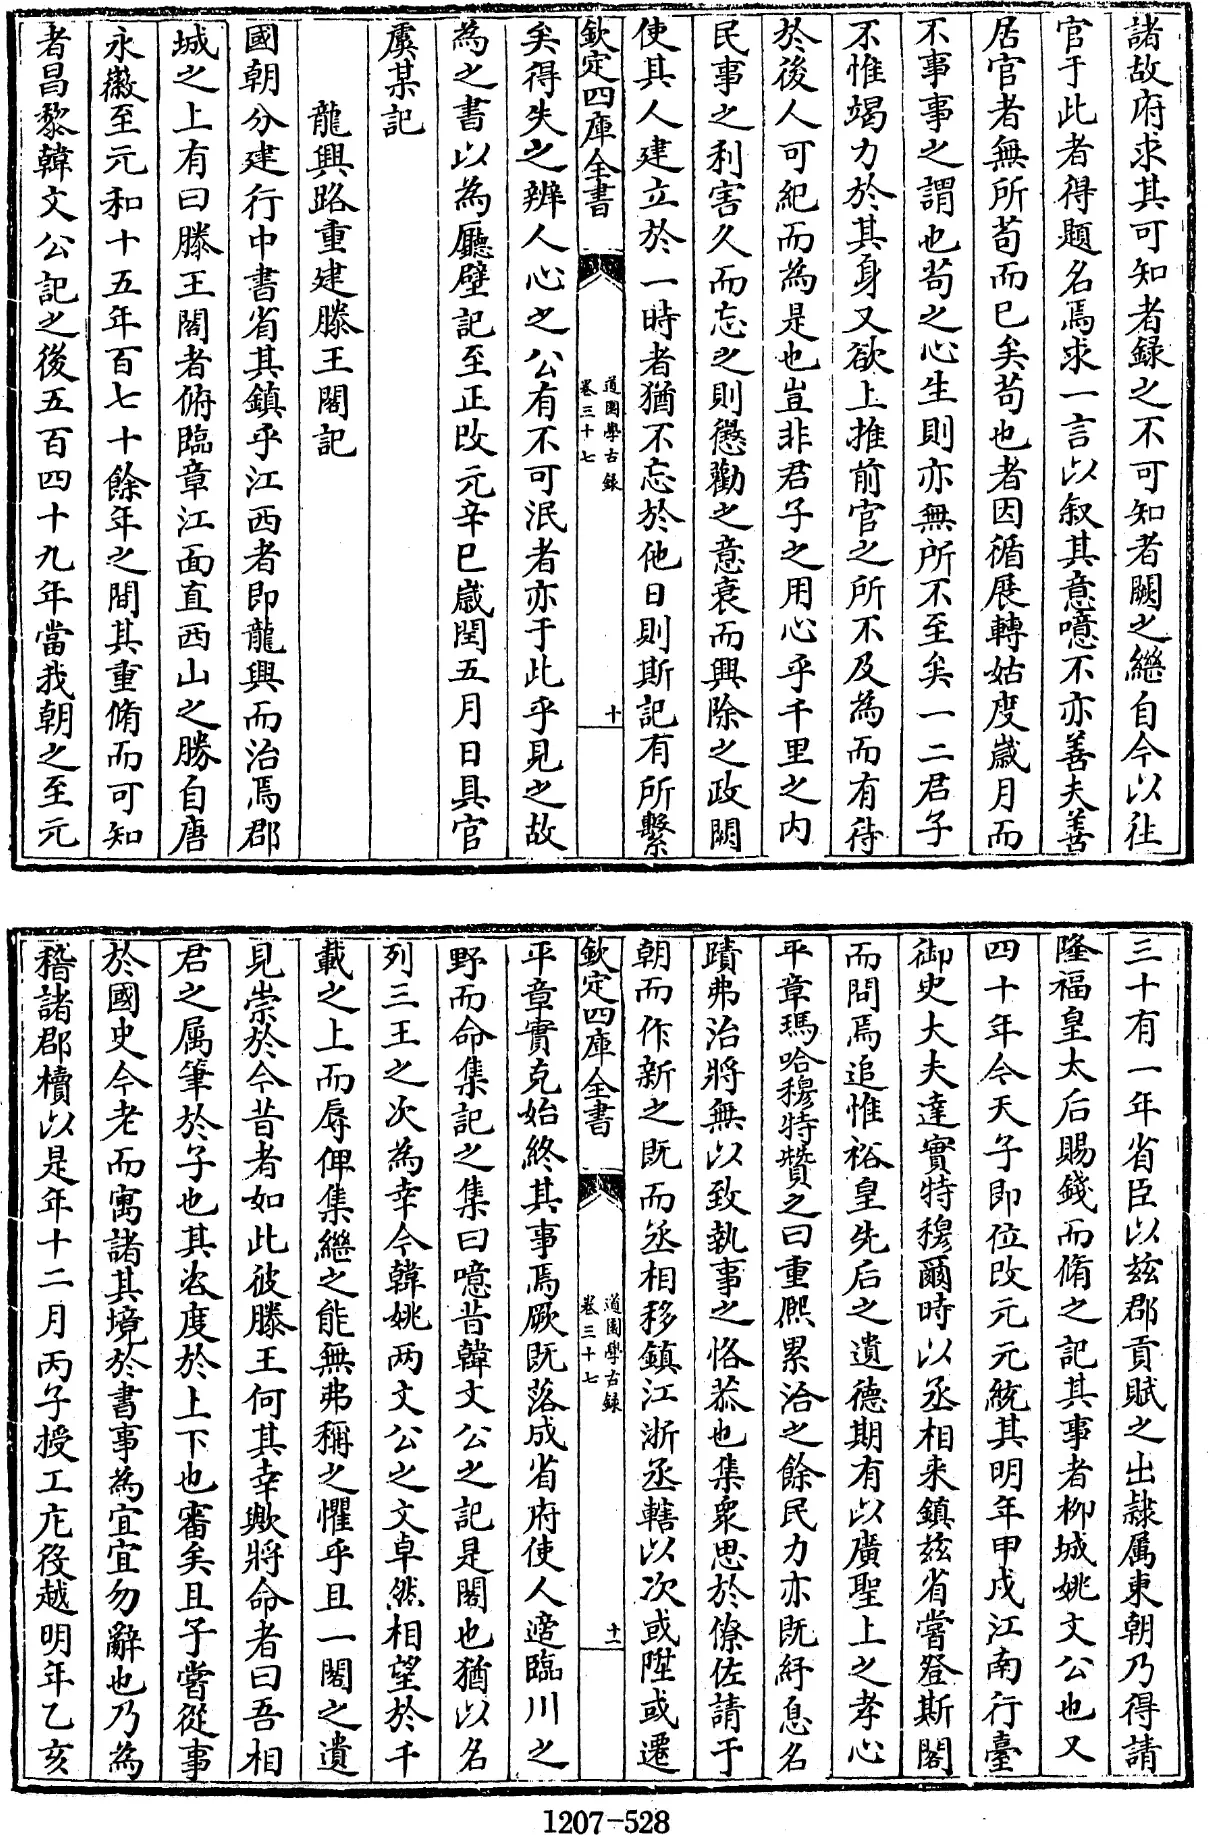 諸故府求其可知者録之不可知者闕之繼自今以往
官于此者得題名焉求一言以叙其意噫不亦善夫善
居官者無所苟而已矣苟也者因循展轉姑度歳月而
不事事之謂也苟之心生則亦無所不至矣一二君子
不惟竭力於其身又欲上推前官之所不及為而有待
於後人可紀而為是也豈非君子之用心乎千里之内
民事之利害久而忘之則懲勸之意衰而興除之政闕
使其人建立於一時者猶不忘於他日則斯記有所繋
欽定四庫全書
道園學古録
卷三十七
十
矣得失之辨人心之公有不可泯者亦于此乎見之故
為之書以為廳壁記至正改元辛巳歳閏五月日具官
虞某記
龍興路重建滕王閣記
國朝分建行中書省其鎮乎江西者即龍興而治焉郡
城之上有曰滕王閣者俯臨章江面直西山之勝自唐
永徽至元和十五年百七十餘年之間其重脩而可知
者昌黎韓文公記之後五百四十九年當我朝之至元
三十有一年省臣以兹郡貢賦之出隷属東朝乃得請
隆福皇太后賜錢而脩之記其事者柳城姚文公也又
四十年今天子即位改元元統其明年甲戌江南行臺
御史大夫達實特穆爾時以丞相来鎮兹省嘗登斯閣
而問焉追惟裕皇先后之遺德期有以廣聖上之孝心
平章瑪哈穆特贊之曰重熙累洽之餘民力亦既紓息名
蹟弗治將無以致執事之恪恭也集衆思於僚佐請于
朝而作新之既而丞相移鎮江浙丞轄以次或陞或遷
欽定四庫全書
道園學古録
卷三十七
十一
平章實克始終其事焉厥既落成省府使人適臨川之
野而命集記之集曰噫昔韓文公之記是閣也猶以名
列三王之次為幸今韓姚两文公之文卓然相望於千
載之上而辱俾集繼之能無弗稱之懼乎且一閣之遺
見崇於今昔者如此彼滕王何其幸歟將命者曰吾相
君之属筆於子也其咨度於上下也審矣且子嘗從事
於國史今老而寓諸其境於書事為宜宜勿辭也乃為
稽諸郡櫝以是年十二月丙子授工庀役越明年乙亥
1207-528